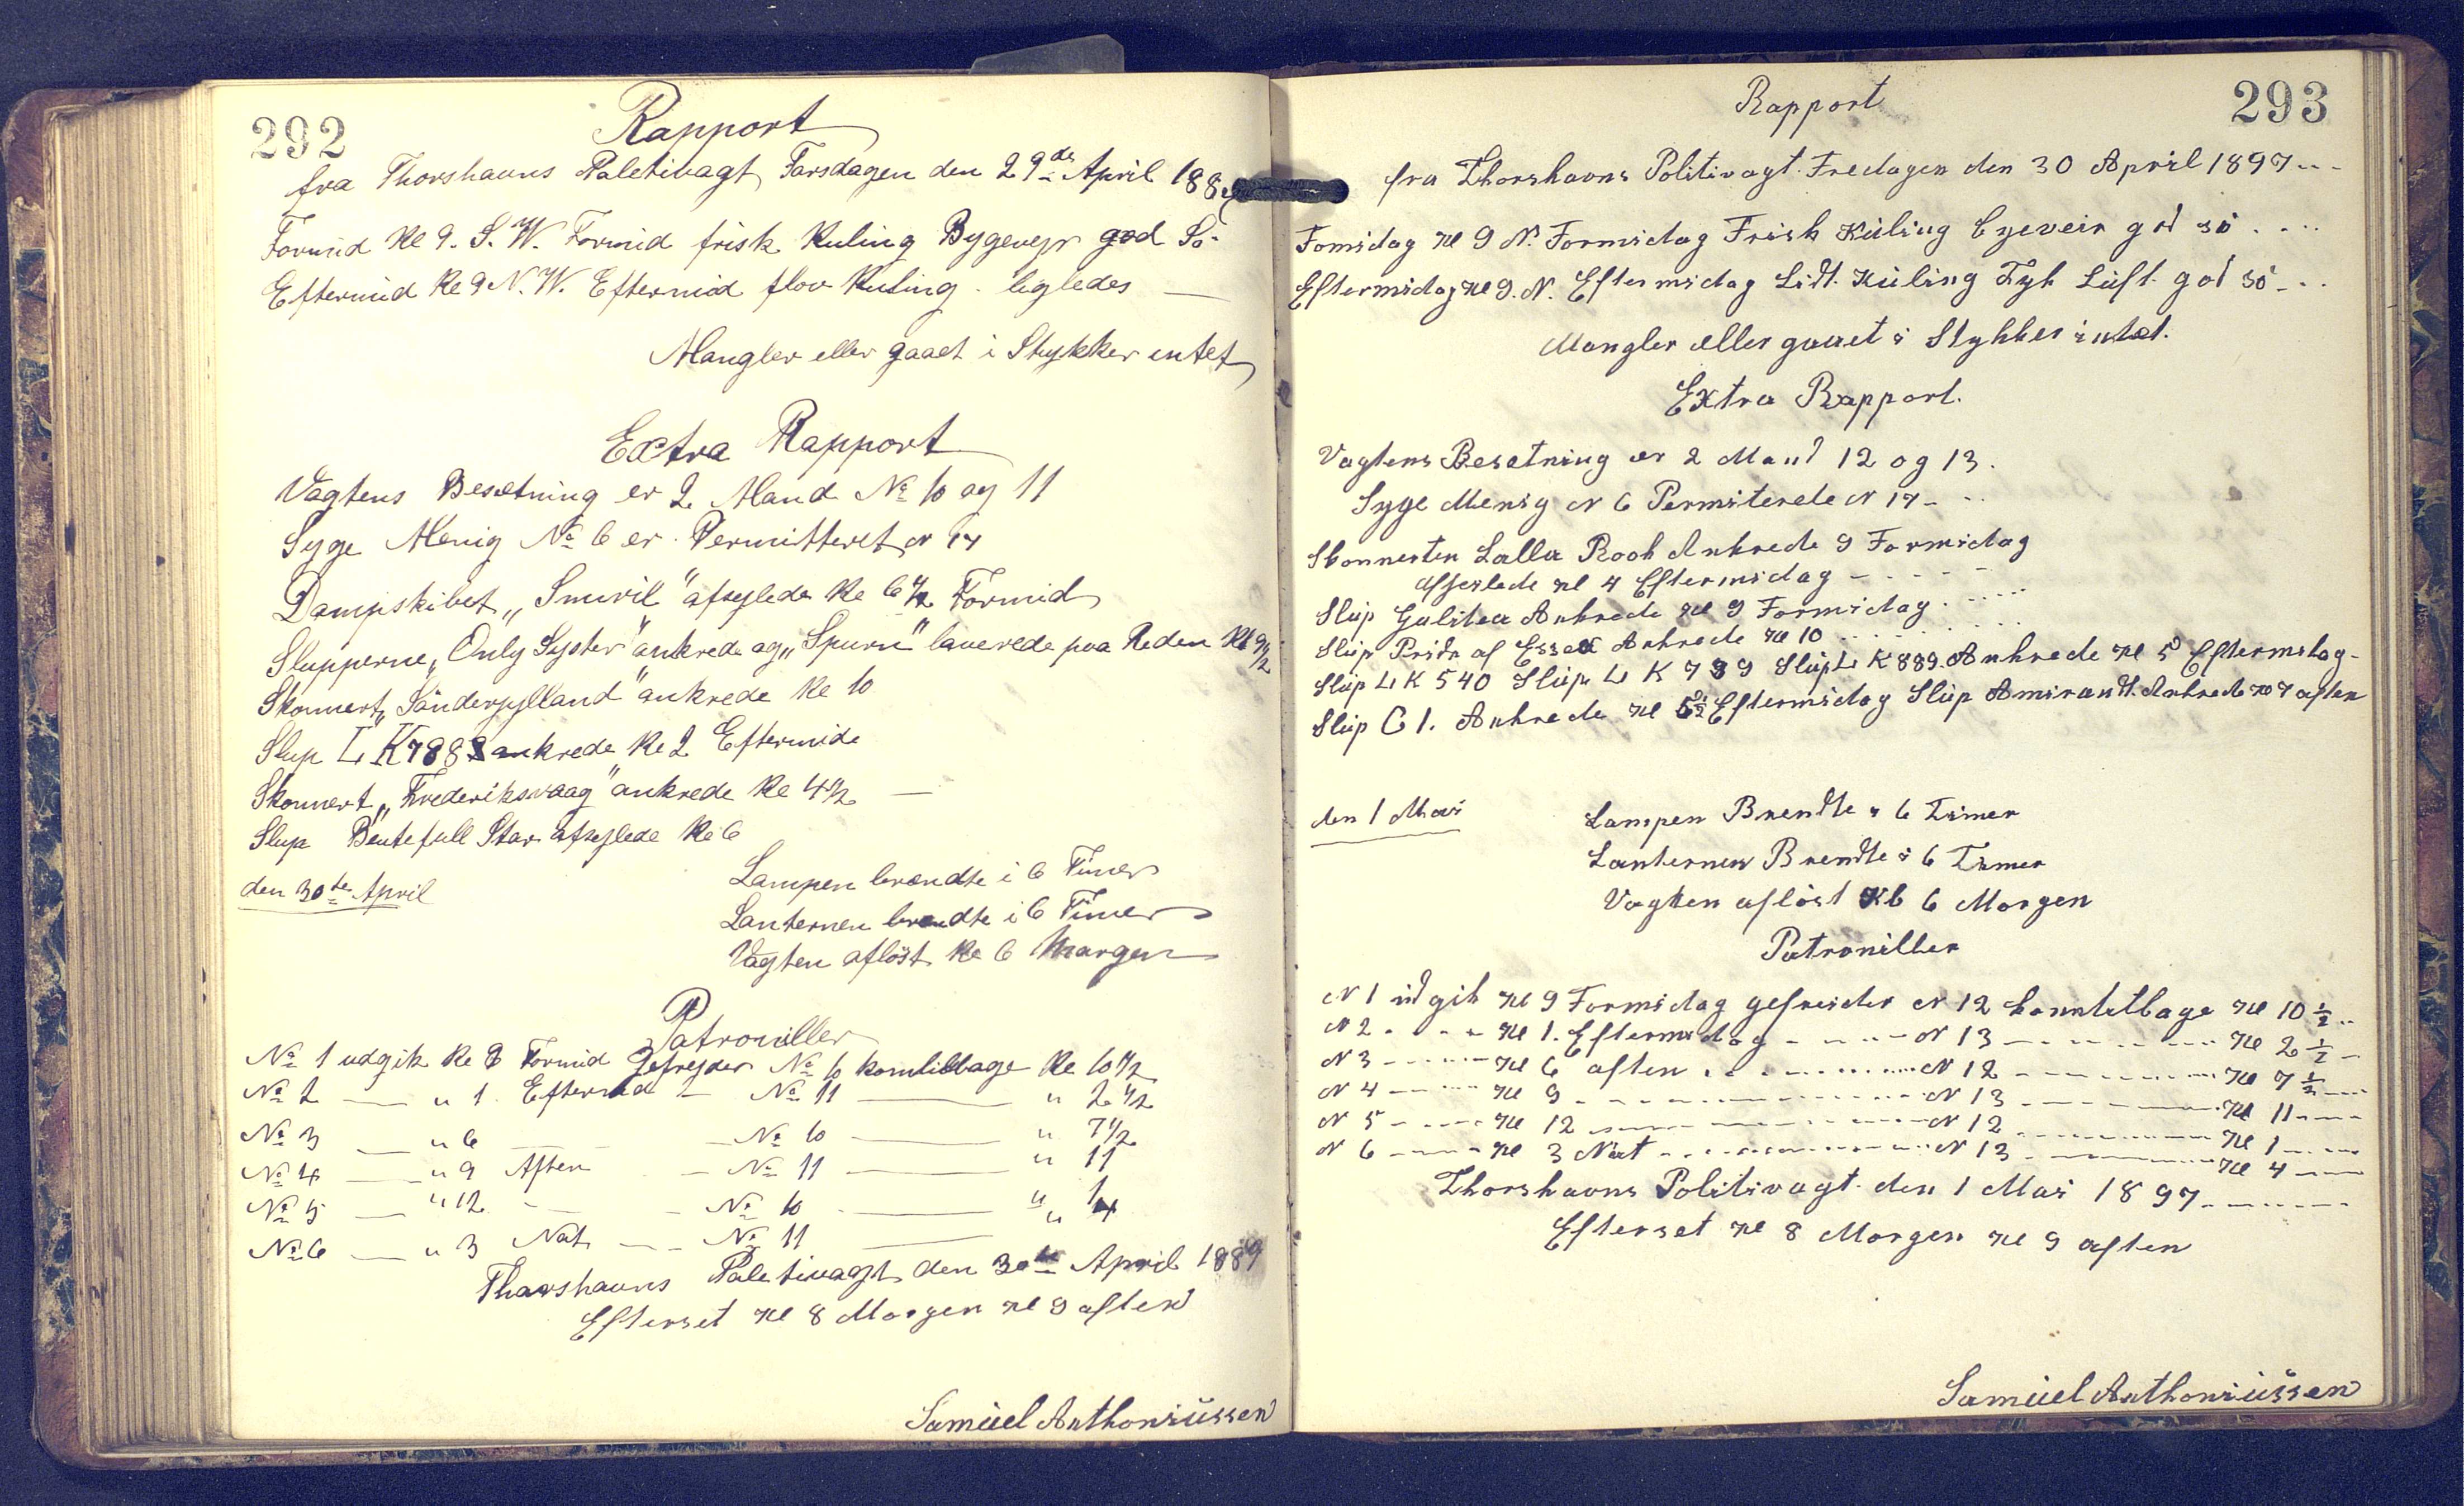 292
Rapport
fra Thorshavns Paletivagt Tarsdagen den 29de April 188
Formid Kl 9. S. W. Formid frisk Kuling Bygevejr god Sö-
Eftermid Kl 9 N. W. Eftermid flov Kuling - ligledes —
Mangler eller gaaet i Stykker intet
Extra Rapport
Vagtens Besætning er 2 Mand No 10 og 11
Syge Menig No 6 er Permitteret N 17
Dampskibet „Smiril" afsejlede Kl 6 1/2 Formid
Slupperne „Only Syster" ankrede og „Spurn" laverede paa Reden Kl 9 1/2
Skonnert „Sönderjylland" ankrede Kl 10
Slup LK 788 ankrede Kl 2 Eftermid
Skonnert „Frederiksvaag" ankrede Kl 4 1/2 —
Slup Beutefull Star afsejlede Kl 6
den 30te April
Lampen brændte i 6 Timer
Lanternen brændte i 6 Timer
Vagten aflöst Kl 6 Morgen
Patrouiller
No 1 udgik Kl 9 Formid Gefrejder No 10 komtilbage Kl 10 1/2
No 2 — " 1 Eftermid — No 11 — " 2 1/2
No 3 — " 6 — No 10 — " 7 1/2
No 4 — " 9 Aften — No 11 — " 11
No 5 — " 12 - - No 10 — " 1
No 6 — " 3 Nat — No 11 — " 4
Thorshavns Paletivagt den 30te April 1889
Efterset Kl 8 Morgen Kl 9 aften
Samüel Anthoniüssen
293
Rapport
fra Thorshavns Politivagt Fredagen den 30 April 1897 - - -
Fomidag Kl 9 N. Formidag Frisk Küling Byeveir god sö . . . .
Eftermidag Kl 9. N. Eftermidag Lidt Küling Tyk Lüft god sö - . .
Mangler eller gaaet i Stykker intet.
Extra Rapport.
Vagtens Besetning er 2 Mand 12 og 13.
Syge Menig N 6 Permiterede N 17 - - -
Skonnerten Lalla Rook Ankrede 9 Formidag
afseilede Kl 4 Eftermidag - - - - -
Slüp Galitea Ankrede Kl 9 Formidag . - - - -
Slüp Pride af Essex Ankrede Kl 10 . . . . . . . . .
Slüp LK 540 Slüp LK 739 Slüp LK 889. Ankrede Kl 5 Eftermidag -
Slüp C 1. Ankrede Kl 5 1/2 Eftermidag Slüp Amirandt. Ankrede Kl 7 aften
den 1 Mai
Lampen Brendte i 6 Timer
Lanternen Brendte i 6 Timer
Vagten aflöst Kl 6 Morgen
Patroniller
N 1 üdgik Kl 9 Formidag gefreider N 12 komtilbage Kl 10 1/2 . .
N 2 - - - - Kl 1. Eftermidag - - - - N 13 - - - - - Kl 2 1/2 -
N 3 - - - - Kl 6 aften - - - - N 12 - - - - - Kl 7 1/2 - - -
N 4 - - - - Kl 9 - - - - N 13 - - - - - Kl 11 - - -
N 5 - - - - Kl 12 - - - - N 12 - - - - - Kl 1 - - -
N 6 - - - - Kl 3 Nat - - - - N 13 - - - - - Kl 4 - - -
Thorshavns Politivagt den 1 Mai 1897 - - - - -
Efterset Kl 8 Morgen Kl 9 aften
Samüel Anthoniüssen